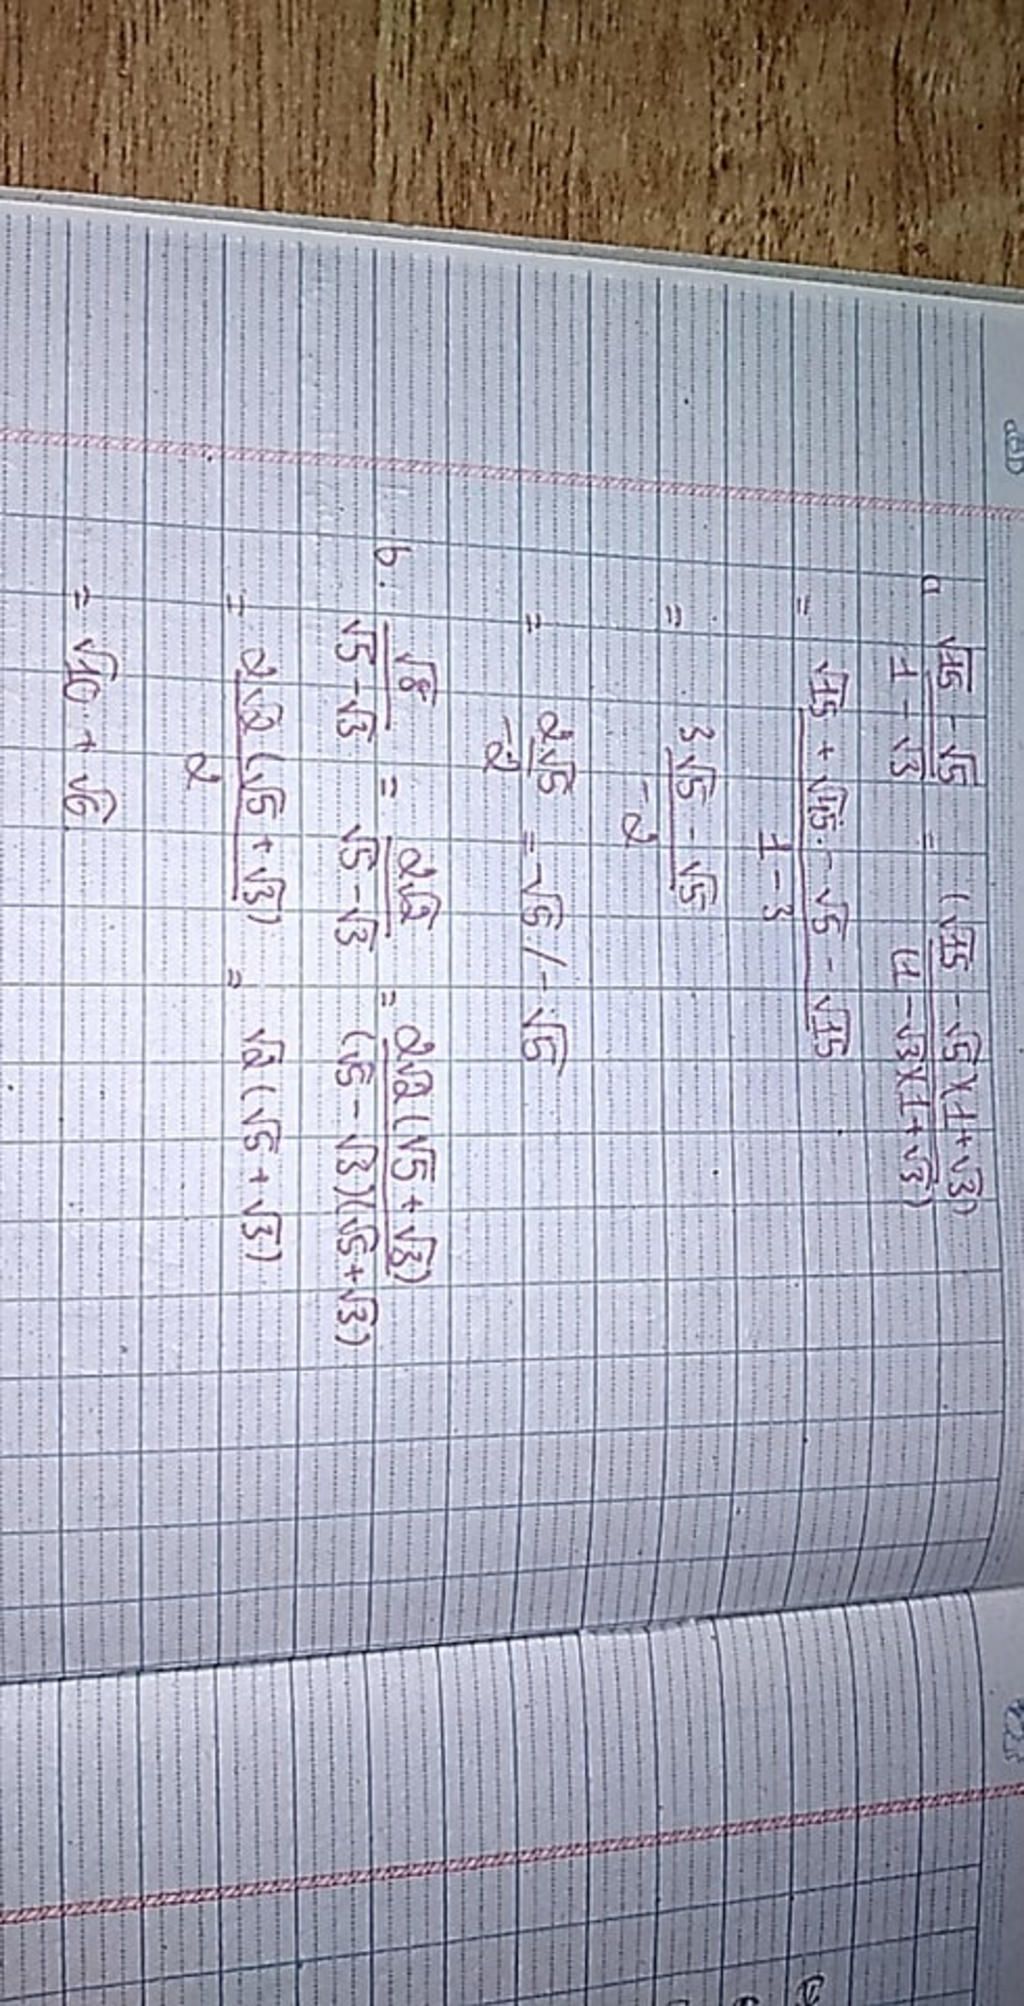 a. √15 - √5 / 1 - √3 = (√15 - √5)(1 + √3) / (1 - √3)(1 + √3)
= √15 + √45 - √5 - √15 / 1 - 3
= 3√5 - √5 / -2
= 2√5 / -2 = -√5 / -√5
b. √8 / √5 - √3 = 2√2 / √5 - √3 = 2√2(√5 + √3) / (√5 - √3)(√5 + √3)
= 2√2(√5 + √3) / 2 = √2(√5 + √3)
= √10 + √6